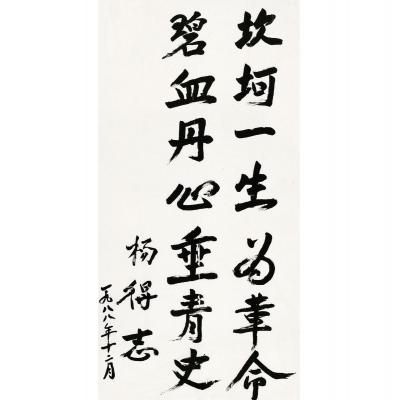 坎坷一生为革命
碧血丹心垂青史
杨得志
一九八八年十二月